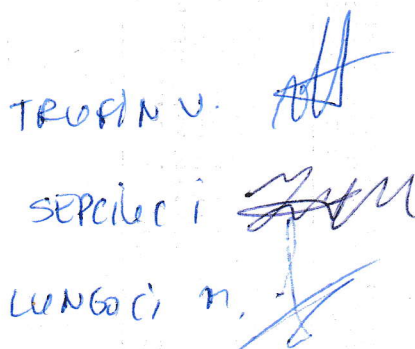 TRUFIN V.
SEPCILIC i
LUNGOCI M.